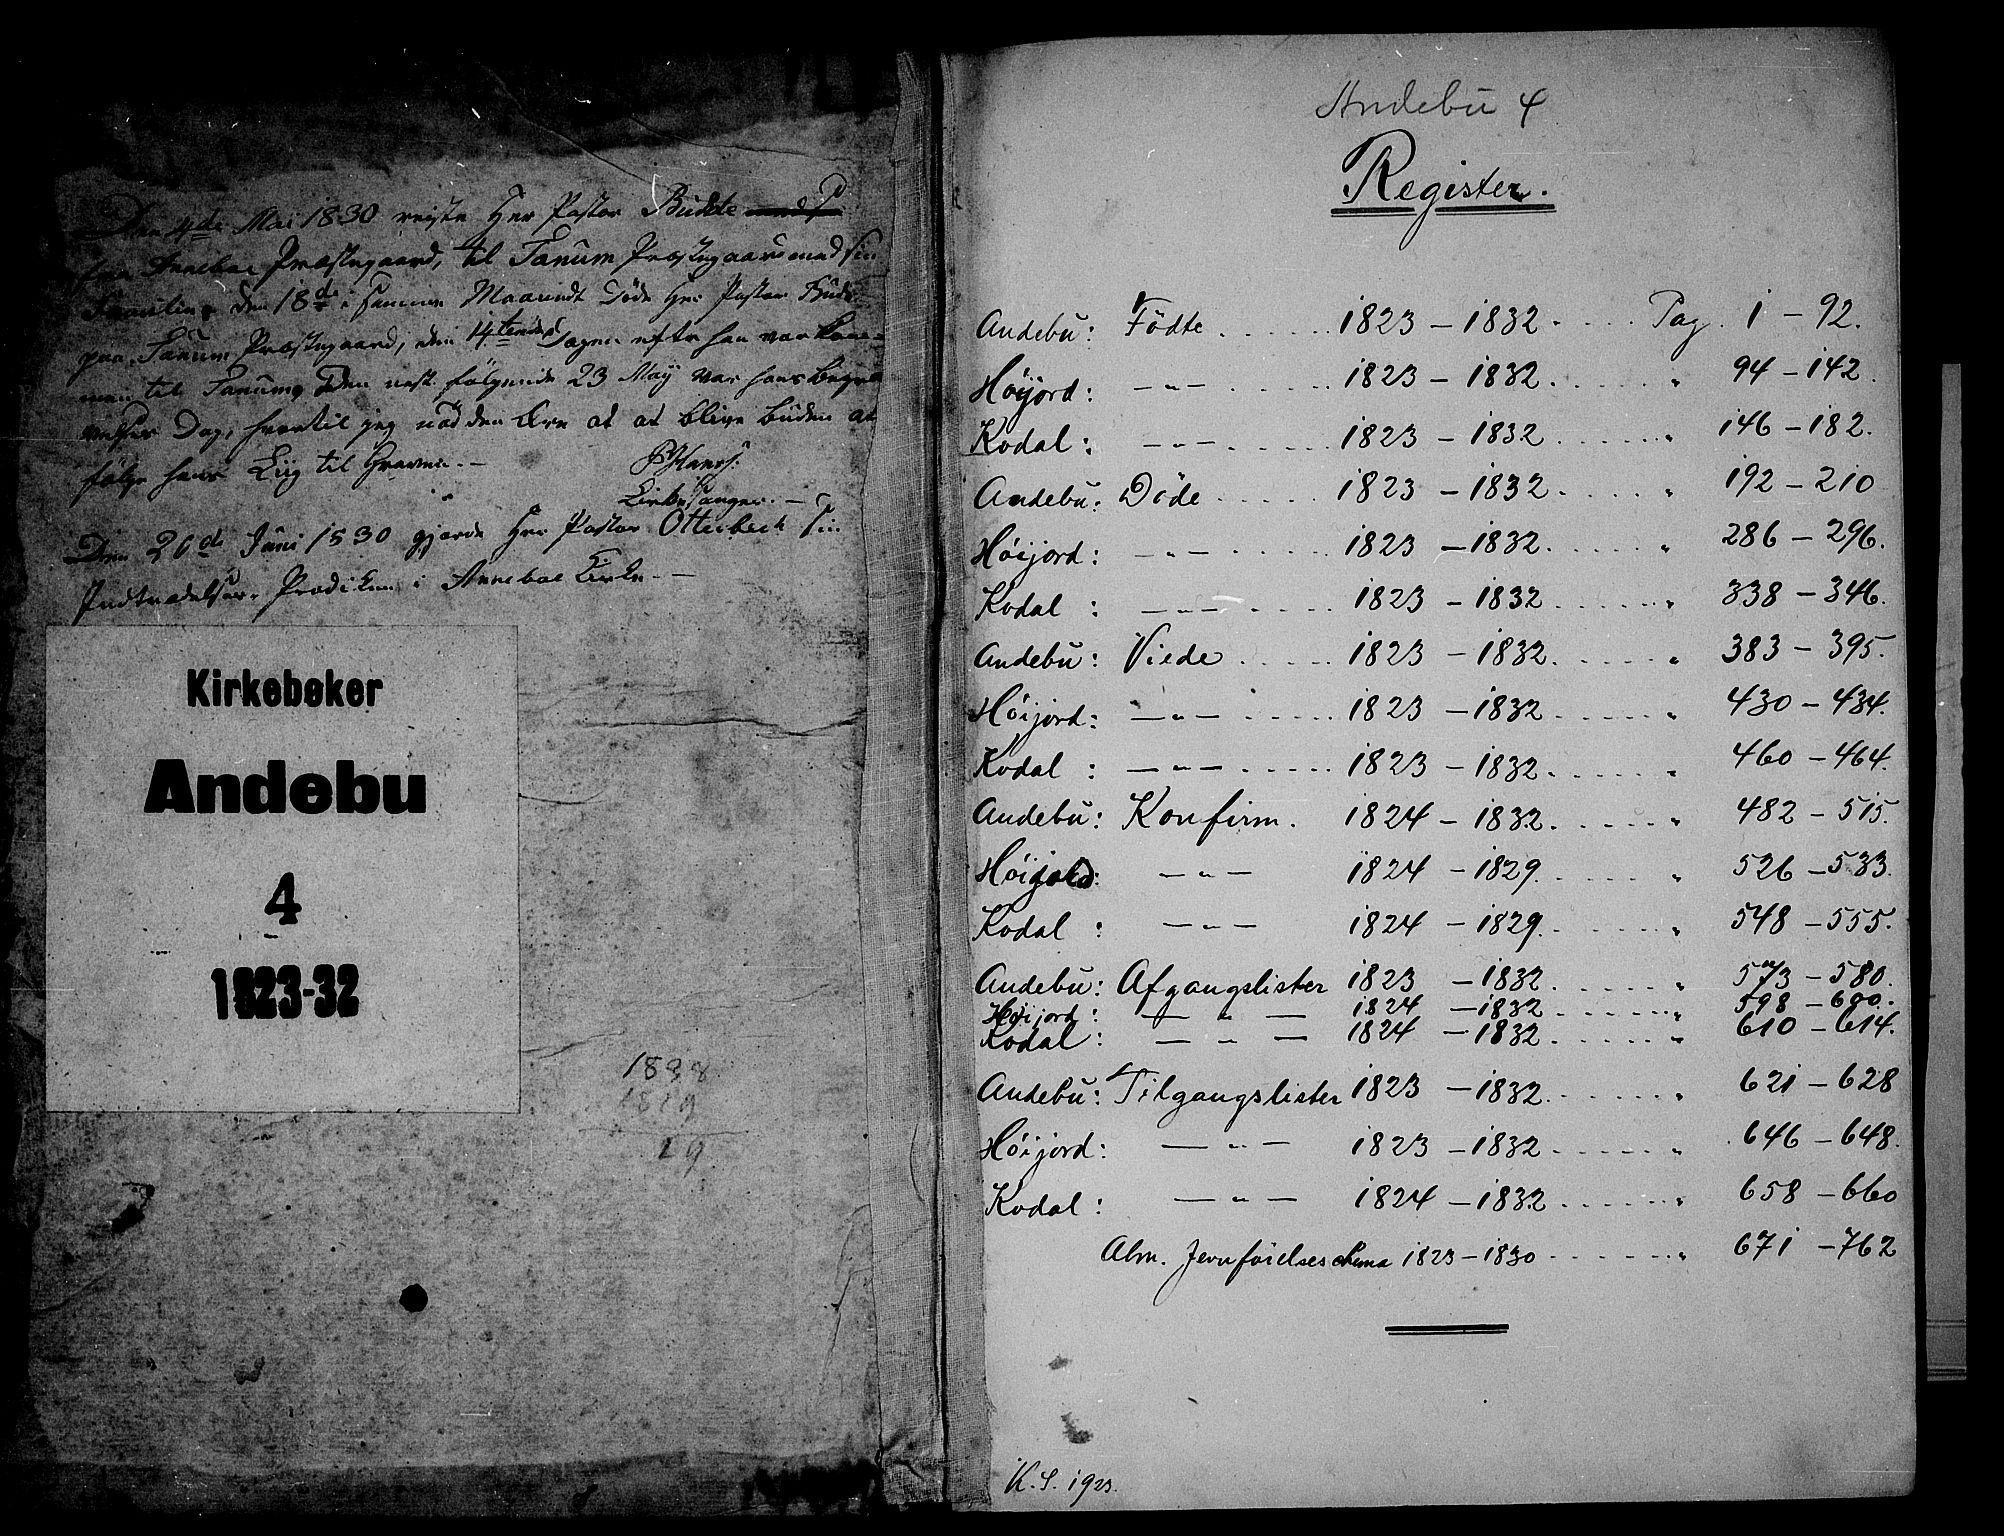 Den 4de Mai 1830 reiste Her Pastor Budde
fra Anneboe Præstegaard, til Tanum Præstegaard med sin
Familie, den 18de i samme Maanedt Døde Her Pastor Budde
paa Tanum Præstegaard, den 14tende Dagen efter han var kom-
men til Tanum, Den nest følgende 23 May var hans Begra-
velses Dag, hvortil jeg nød den Ære at at blive buden at
følge hans Liig til Graven. —
P Hans:
Kirkesanger. —
Den 26de Juni 1830 gjorde Her Pastor Otterbech Sin
Indtrædelses-Prædiken i Anneboe Kirke. —
Kirkebøker
Andebu
4
1823-32
1838
1819
19
Andebu 4
Register.
Andebu: Födte ..... 1823 – 1832 ..... Pag. 1 – 92.
Höijord: — " — ..... 1823 – 1832 ..... " 94 – 142.
Kodal: — " — ..... 1823 – 1832 ..... " 146 – 182.
Andebu: Döde ..... 1823 – 1832 ..... " 192 – 210
Höijord: — " — ..... 1823 – 1832 ..... " 286 – 296.
Kodal : — " — ..... 1823 – 1832 ..... " 338 – 346.
Andebu: Viede ..... 1823 – 1832 ..... " 383 – 395.
Höijord: — " — ..... 1823 – 1832 ..... " 430 – 434.
Kodal : — " — ..... 1823 – 1832 ..... " 460 – 464.
Andebu: Konfirm. 1824 – 1832 ..... " 482 – 515.
Höijord: — " — 1824 – 1829 ..... " 526 – 533.
Kodal : — " — 1824 – 1829 ..... " 548 – 555.
Andebu: Afgangslister 1823 – 1832 ..... " 573 – 580.
Höijord : — " — 1824 – 1832 ..... " 598 – 600.
Kodal : — " — 1824 – 1832 ..... " 610 – 614.
Andebu: Tilgangslister 1823 – 1832 ..... " 621 – 628
Höijord: — " — 1823 – 1832 ..... " 646 – 648.
Kodal : — " — 1824 – 1832 ..... " 658 – 660
Alm. Jevnförelseschema 1823 – 1830 ..... " 671 – 762
K. S. 1923.